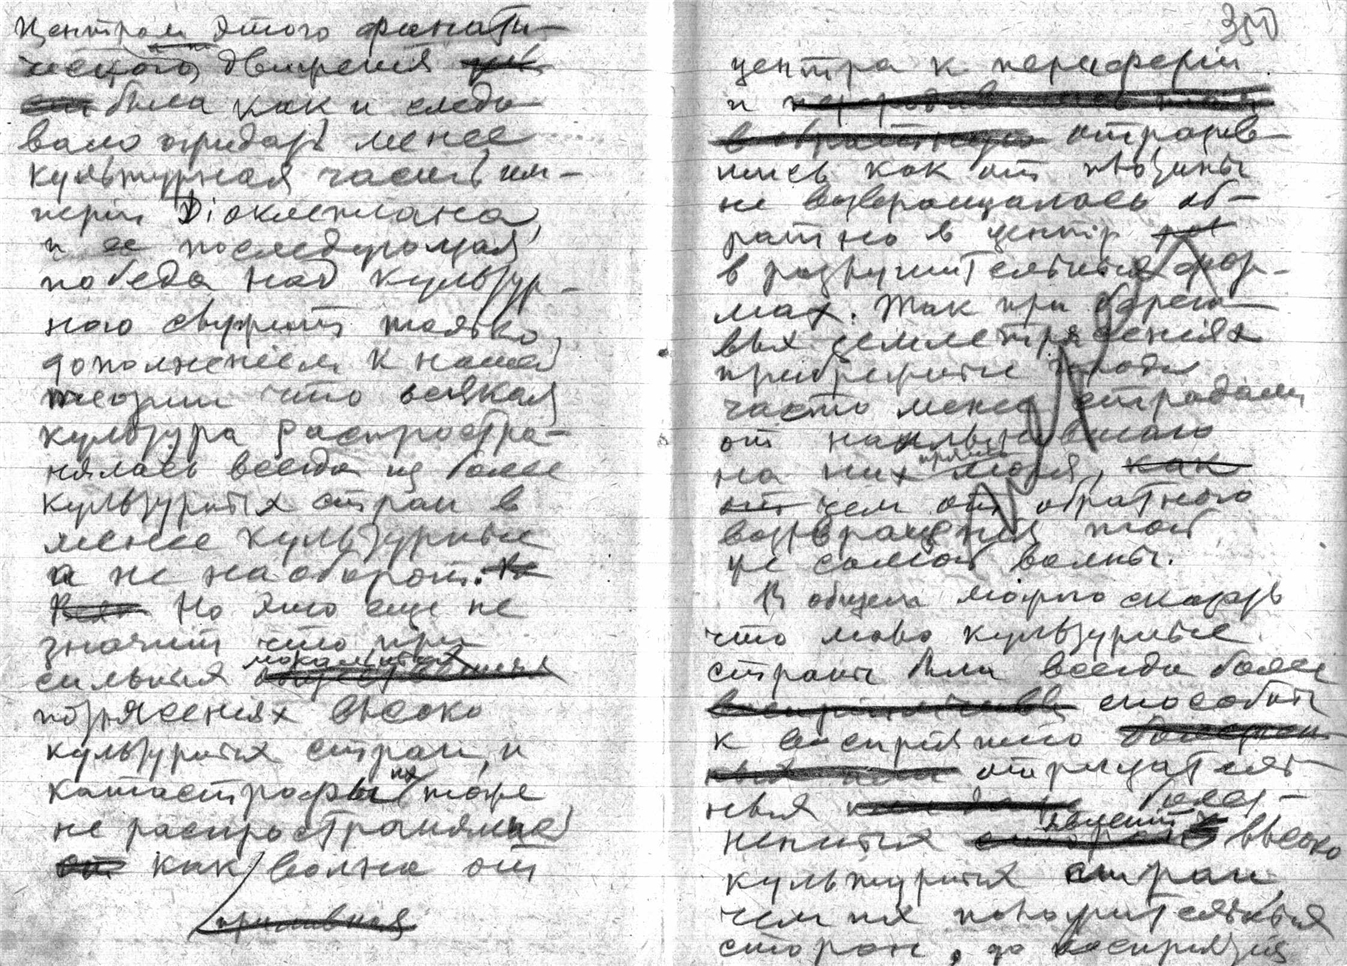 Центром этого фанати-
ческого движения
была как и следо-
вало ожидать менее
культурная часть им-
перiи Дiоклетиана,
и ее последующая
победа над культур-
ною служит только
дополненiем к нашей
теории что всякая
культура распростра-
нялась всегда из более
культурных стран в
менее культурные
а не наоборот.
Но это еще не
значит что при
сильных
потрясениях высоко
культурных стран, и
катастрофы их тоже
не распространялись
как волна от
приливная
350
центра к периферiи
и
отразив-
шись как от плотины
не возвращалось об-
ратно в центр
в разрушительных фор-
мах. Так при береговых
землетрясениях
прибрежные города
часто менее страдали
от нахлынувшего
на них прямо моря, как
от чем от обратного
возвращения той
же самой волны.
В общем можно сказать
что мало культурные
страны были всегда более
способны
к восприятию
отрицатель-
ных болез-
ненных явлений высоко
культурных стран,
чем их положительных
сторон, до восприятия